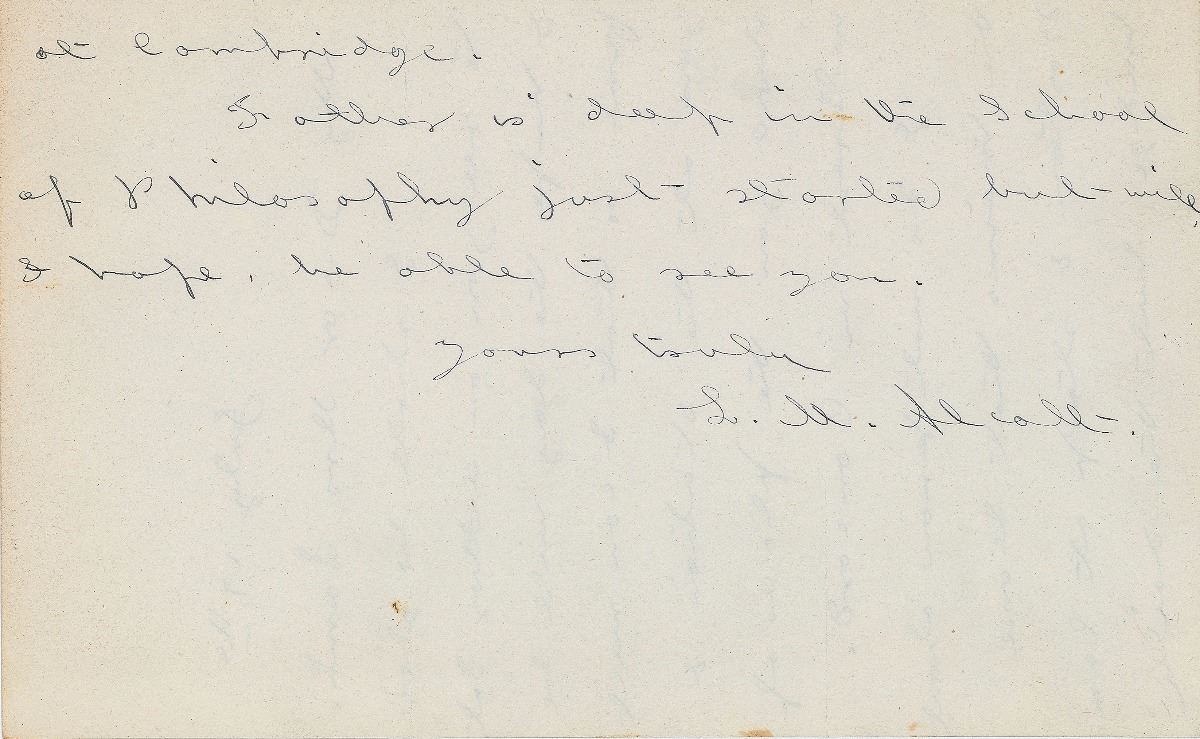 at Cambridge.
Father is deep in the School
of Philosophy just started, but will,
I hope, be able to see you.
yours truly
L. M. Alcott.